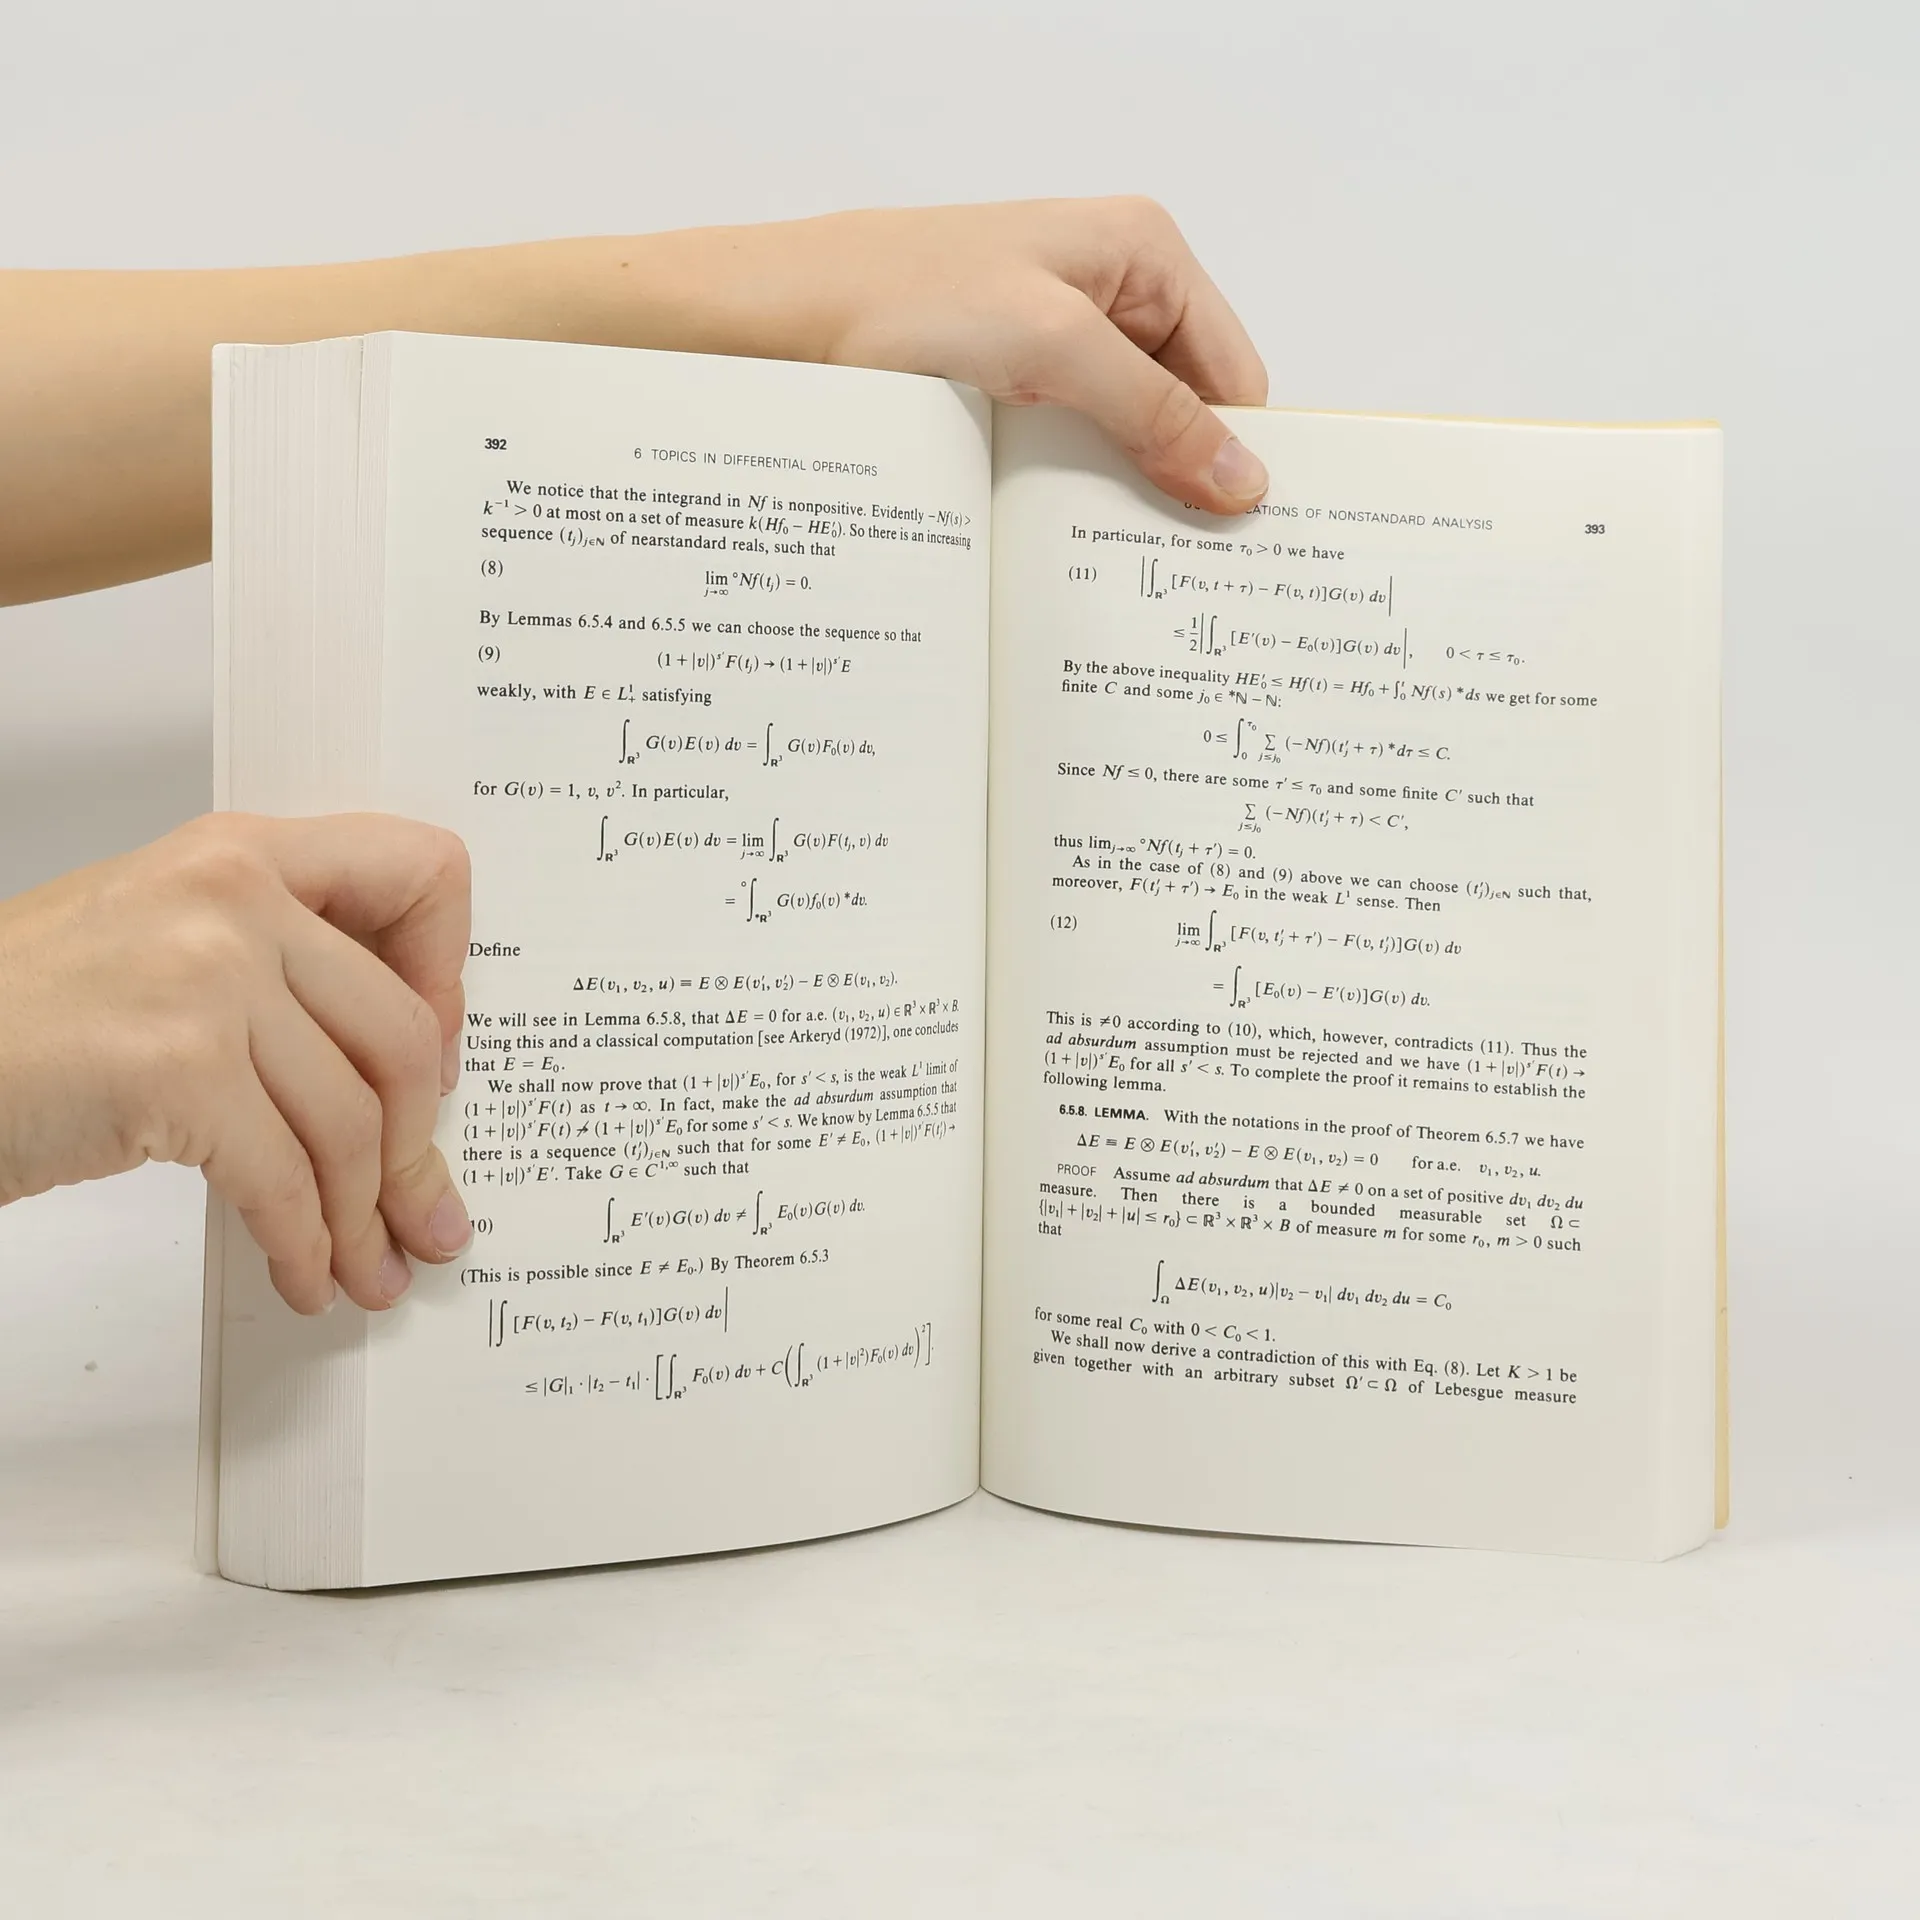 392
6 TOPICS IN DIFFERENTIAL OPERATORS
We notice that the integrand in Nf is nonpositive. Evidently −Nf(s) >
k⁻¹ > 0 at most on a set of measure k(Hf₀ − HE₀′). So there is an increasing
sequence (tⱼ)ⱼ∈N of nearstandard reals, such that
(8) lim j→∞ °Nf(tⱼ) = 0.
By Lemmas 6.5.4 and 6.5.5 we can choose the sequence so that
(9) (1 + |v|)^s′ F(tⱼ) → (1 + |v|)^s′ E
weakly, with E ∈ L¹₊ satisfying
∫_R³ G(v)E(v) dv = ∫_R³ G(v)F₀(v) dv,
for G(v) = 1, v, v². In particular,
∫_R³ G(v)E(v) dv = lim j→∞ ∫_R³ G(v)F(tⱼ, v) dv
= °∫_*R³ G(v)f₀(v) *dv.
Define
ΔE(v₁, v₂, u) ≡ E ⊗ E(v₁′, v₂′) − E ⊗ E(v₁, v₂).
We will see in Lemma 6.5.8, that ΔE = 0 for a.e. (v₁, v₂, u) ∈ R³ × R³ × B.
Using this and a classical computation [see Arkeryd (1972)], one concludes
that E = E₀.
We shall now prove that (1 + |v|)^s′ E₀, for s′ < s, is the weak L¹ limit of
(1 + |v|)^s′ F(t) as t → ∞. In fact, make the ad absurdum assumption that
(1 + |v|)^s′ F(t) ↛ (1 + |v|)^s′ E₀ for some s′ < s. We know by Lemma 6.5.5 that
there is a sequence (tⱼ′)ⱼ∈N such that for some E′ ≠ E₀, (1 + |v|)^s′ F(tⱼ′) →
(1 + |v|)^s′ E′. Take G ∈ C^1,∞ such that
10) ∫_R³ E′(v)G(v) dv ≠ ∫_R³ E₀(v)G(v) dv.
(This is possible since E ≠ E₀.) By Theorem 6.5.3
|∫ [F(v, t₂) − F(v, t₁)]G(v) dv|
≤ |G|₁ · |t₂ − t₁| · [∫_R³ F₀(v) dv + C(∫_R³ (1 + |v|²)F₀(v) dv)²].
ATIONS OF NONSTANDARD ANALYSIS
393
In particular, for some τ₀ > 0 we have
(11) |∫_R³ [F(v, t + τ) − F(v, t)]G(v) dv|
≤ 1/2 |∫_R³ [E′(v) − E₀(v)]G(v) dv|, 0 < τ ≤ τ₀.
By the above inequality HE₀′ ≤ Hf(t) = Hf₀ + ∫₀ᵗ Nf(s) *ds we get for some
finite C and some j₀ ∈ *N − N:
0 ≤ ∫₀^τ₀ Σ j≤j₀ (−Nf)(tⱼ′ + τ) *dτ ≤ C.
Since Nf ≤ 0, there are some τ′ ≤ τ₀ and some finite C′ such that
Σ j≤j₀ (−Nf)(tⱼ′ + τ) < C′,
thus lim j→∞ °Nf(tⱼ + τ′) = 0.
As in the case of (8) and (9) above we can choose (tⱼ′)ⱼ∈N such that,
moreover, F(tⱼ′ + τ′) → E₀ in the weak L¹ sense. Then
(12) lim j→∞ ∫_R³ [F(v, tⱼ′ + τ′) − F(v, tⱼ′)]G(v) dv
= ∫_R³ [E₀(v) − E′(v)]G(v) dv.
This is ≠0 according to (10), which, however, contradicts (11). Thus the
ad absurdum assumption must be rejected and we have (1 + |v|)^s′ F(t) →
(1 + |v|)^s′ E₀ for all s′ < s. To complete the proof it remains to establish the
following lemma.
6.5.8. LEMMA. With the notations in the proof of Theorem 6.5.7 we have
ΔE ≡ E ⊗ E(v₁′, v₂′) − E ⊗ E(v₁, v₂) = 0 for a.e. v₁, v₂, u.
PROOF Assume ad absurdum that ΔE ≠ 0 on a set of positive dv₁ dv₂ du
measure. Then there is a bounded measurable set Ω ⊂
{|v₁| + |v₂| + |u| ≤ r₀} ⊂ R³ × R³ × B of measure m for some r₀, m > 0 such
that
∫_Ω ΔE(v₁, v₂, u)|v₂ − v₁| dv₁ dv₂ du = C₀
for some real C₀ with 0 < C₀ < 1.
We shall now derive a contradiction of this with Eq. (8). Let K > 1 be
given together with an arbitrary subset Ω′ ⊂ Ω of Lebesgue measure